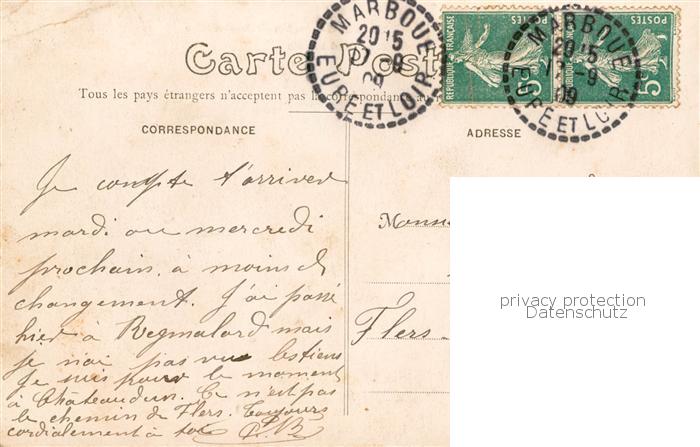 Carte Post
MARBOUE
20 15
12 -9
09
EURE ET LOIR
REPUBLIQUE FRANÇAISE
POSTES
5
MARBOUE
20 15
12 -9
09
EURE ET LOIR
POSTES
5
Tous les pays étrangers n'acceptent pas la correspondance au
CORRESPONDANCE
ADRESSE
Je compte t'arriver
mardi ou mercredi
prochain, à moins de
changement. J'ai passé
hier à Regmalard mais
je n'ai pas vu les tiens
Je suis pour le moment
à Châteaudun. Ce n'est pas
le chemin de Flers. Toujours
cordialement à toi
Monsi
Flers
privacy protection
Datenschutz